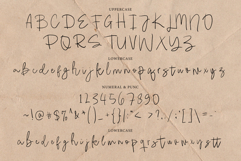 UPPERCASE
ABCDEFGHIJKLMNO
PQRSTUVWXYZ
LOWERCASE
abcdefghijklmnopqrstuvwxyz
NUMERAL & PUNC
1234567890
LOWERCASE
abcdefghijklmnopqrstuvwxyz